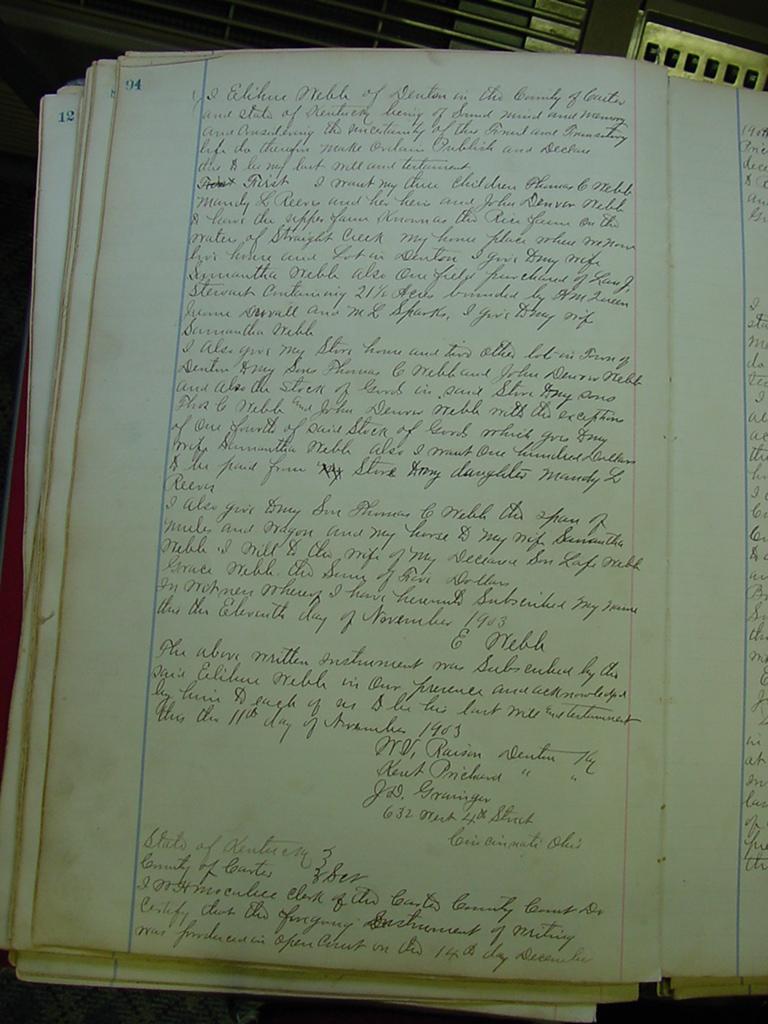 94
12
I Elihue Webb of Denton in the County of Carter
and state of Kentucky being of Sound mind and memory
and Considering the uncertainty of this Frail and Transitory
life do therefore make Ordain Publish and Declare
this to be my last will and testament
First I want my three Children Thomas C Webb
Mandy L Reeves and her heirs and John Denver Webb
to have the upper farm Known as the Rice farm on the
waters of Straight Creek my home place where we now
live house and Lot in Denton I give to my wife
Samantha Webb also One field purchased of
Stewart Containing 21½ Acres bounded by
Duvall and M L Sparks, I give to my wife
Samantha Webb
I Also give my Store house and two other lots in Town of
Denton to my Sons Thomas C Webb and John Denver Webb
and also the Stock of Goods in said Store to my sons
Thos C Webb and John Denver Webb with the exception
of One fourth of said Stock of Goods which goes to my
wife Samantha Webb also I want One hundred Dollars
to be paid from Store to my daughter Mandy L
Reeves
I Also give to my Son Thomas C Webb the span of
mules and wagon and my horse to my wife Samantha
Webb. I Will to the wife of my Deceased Son Lafe Webb
Grace Webb the Sum of Five Dollars
In Witness whereof I have hereunto Subscribed my name
this the Eleventh day of November 1903
E Webb
The above written instrument was Subscribed by the
said Elihue Webb in Our presence and acknowledged
by him to each of us to be his last will and testament
this the 11th day of November 1903
Denton Ky
Kent Prichard " "
J.D. Grainger
632 West 4th Street
Cincinnati Ohio
State of Kentucky }
County of Carter } Sct
I Clerk of the Carter County Court Do
Certify that the foregoing Instrument of writing
was produced in Open Court on the 14th day December